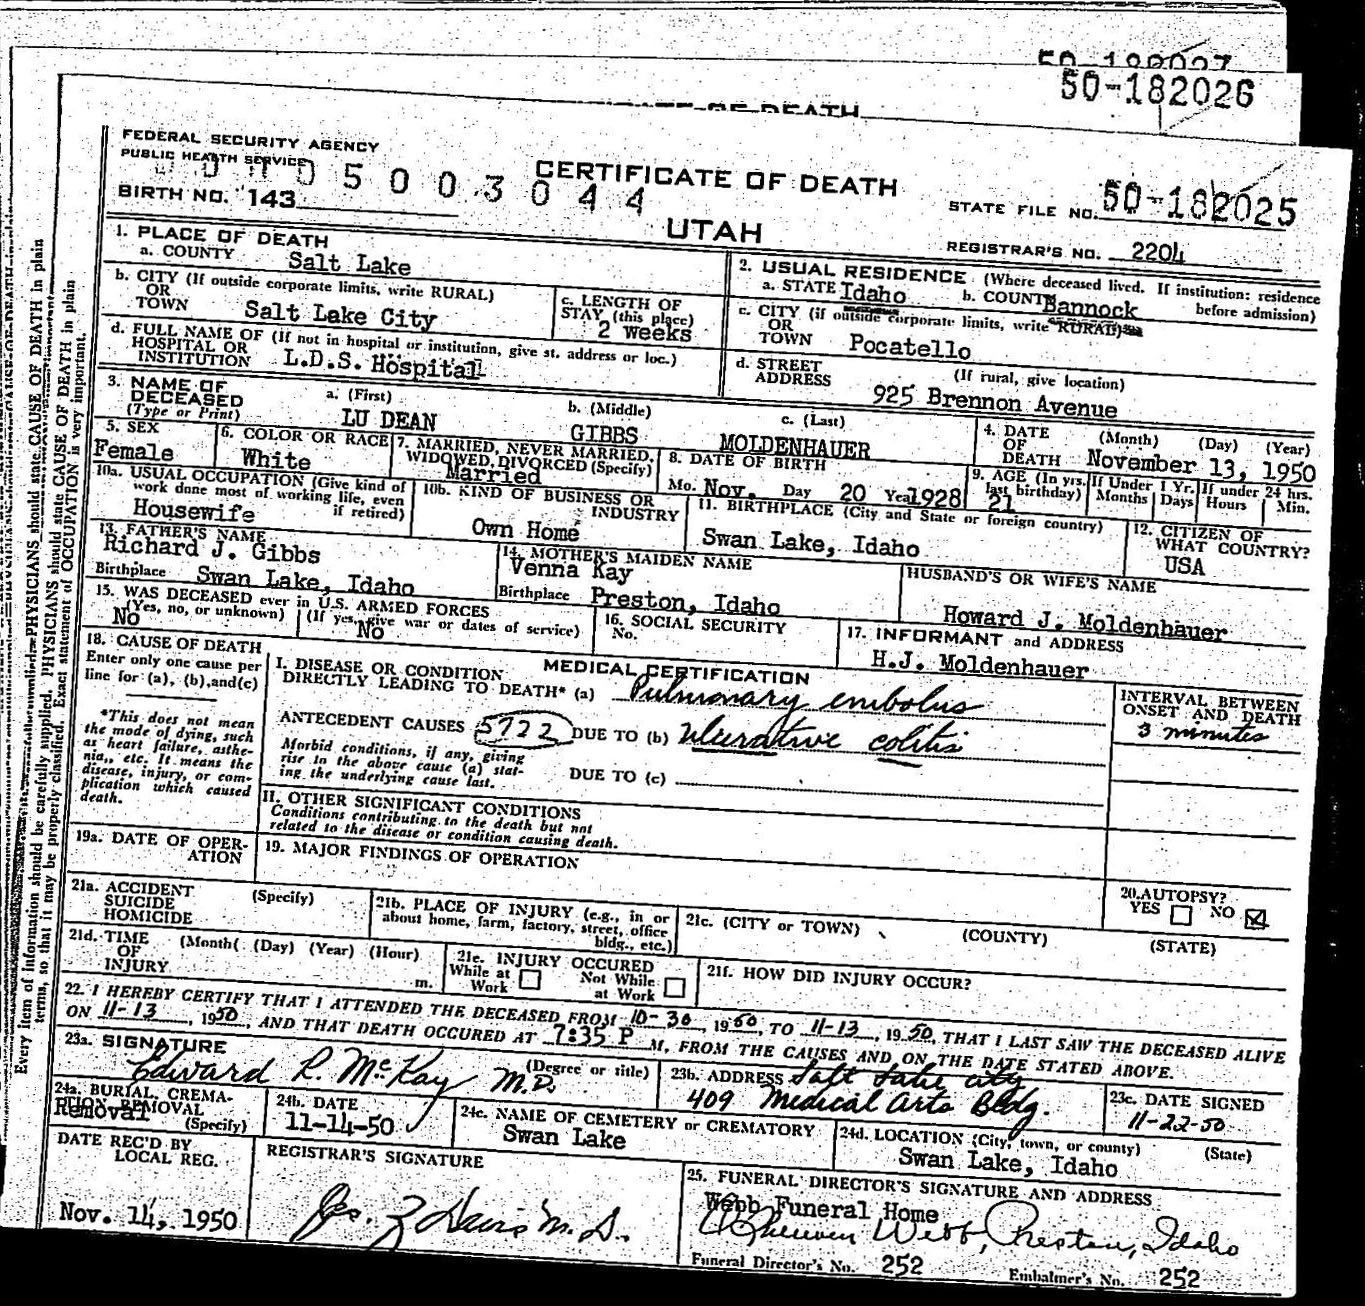 50-182027
50-182026
OF DEATH
FEDERAL SECURITY AGENCY
PUBLIC HEALTH SERVICE
0 5 0 0 3 0 4 4
CERTIFICATE OF DEATH
BIRTH NO. 143
UTAH
STATE FILE NO. 50-182025
REGISTRAR'S NO. 2204
1. PLACE OF DEATH
a. COUNTY Salt Lake
b. CITY (If outside corporate limits, write RURAL)
OR
TOWN Salt Lake City
c. LENGTH OF
STAY (this place)
2 Weeks
d. FULL NAME OF (If not in hospital or institution, give st. address or loc.)
HOSPITAL OR
INSTITUTION L.D.S. Hospital
2. USUAL RESIDENCE (Where deceased lived. If institution: residence
before admission)
a. STATE Idaho b. COUNTY Bannock
c. CITY (if outside corporate limits, write RURAL)
OR
TOWN Pocatello
d. STREET (If rural, give location)
ADDRESS 925 Brennon Avenue
3. NAME OF
DECEASED
(Type or Print)
a. (First) LU DEAN
b. (Middle) GIBBS
c. (Last) MOLDENHAUER
4. DATE (Month) (Day) (Year)
OF
DEATH November 13, 1950
5. SEX
Female
6. COLOR OR RACE
White
7. MARRIED, NEVER MARRIED,
WIDOWED, DIVORCED (Specify)
Married
8. DATE OF BIRTH
Mo. Nov. Day 20 Year 1928
9. AGE (In yrs.
last birthday)
21
If Under 1 Yr.
Months Days
If under 24 hrs.
Hours Min.
10a. USUAL OCCUPATION (Give kind of
work done most of working life, even
if retired)
Housewife
10b. KIND OF BUSINESS OR
INDUSTRY
Own Home
11. BIRTHPLACE (City and State or foreign country)
Swan Lake, Idaho
12. CITIZEN OF
WHAT COUNTRY?
USA
13. FATHER'S NAME
Richard J. Gibbs
Birthplace Swan Lake, Idaho
14. MOTHER'S MAIDEN NAME
Venna Kay
Birthplace Preston, Idaho
HUSBAND'S OR WIFE'S NAME
Howard J. Moldenhauer
15. WAS DECEASED ever in U.S. ARMED FORCES
(Yes, no, or unknown) (If yes, give war or dates of service)
No No
16. SOCIAL SECURITY
No.
17. INFORMANT and ADDRESS
H.J. Moldenhauer
18. CAUSE OF DEATH
Enter only one cause per
line for (a), (b), and (c)
*This does not mean
the mode of dying, such
as heart failure, asthe-
nia,, etc. It means the
disease, injury, or com-
plication which caused
death.
MEDICAL CERTIFICATION
I. DISEASE OR CONDITION
DIRECTLY LEADING TO DEATH* (a) Pulmonary embolus
ANTECEDENT CAUSES 5722 DUE TO (b) Ulcerative colitis
Morbid conditions, if any, giving
rise to the above cause (a) stat-
ing the underlying cause last.
DUE TO (c)
INTERVAL BETWEEN
ONSET AND DEATH
3 minutes
II. OTHER SIGNIFICANT CONDITIONS
Conditions contributing to the death but not
related to the disease or condition causing death.
19a. DATE OF OPER-
ATION
19. MAJOR FINDINGS OF OPERATION
20. AUTOPSY?
YES NO
21a. ACCIDENT (Specify)
SUICIDE
HOMICIDE
21b. PLACE OF INJURY (e.g., in or
about home, farm, factory, street, office
bldg., etc.)
21c. (CITY or TOWN) (COUNTY) (STATE)
21d. TIME (Month( (Day) (Year) (Hour)
OF
INJURY m.
21e. INJURY OCCURED
While at Work
Not While at Work
21f. HOW DID INJURY OCCUR?
22. I HEREBY CERTIFY THAT I ATTENDED THE DECEASED FROM 10-30, 1950, TO 11-13, 1950, THAT I LAST SAW THE DECEASED ALIVE
ON 11-13, 1950, AND THAT DEATH OCCURED AT 7:35 P M, FROM THE CAUSES AND ON THE DATE STATED ABOVE.
23a. SIGNATURE (Degree or title)
Edward R. McKay M.D.
23b. ADDRESS Salt Lake City
409 Medical Arts Bldg.
23c. DATE SIGNED
11-22-50
24a. BURIAL, CREMA-
TION, REMOVAL
(Specify)
Removal
24b. DATE
11-14-50
24c. NAME OF CEMETERY or CREMATORY
Swan Lake
24d. LOCATION (City, town, or county) (State)
Swan Lake, Idaho
DATE REC'D BY
LOCAL REG.
Nov. 14, 1950
REGISTRAR'S SIGNATURE
25. FUNERAL DIRECTOR'S SIGNATURE AND ADDRESS
Webb Funeral Home
Webb, Preston, Idaho
Funeral Director's No. 252
Embalmer's No. 252
Every item of information should be carefully supplied. PHYSICIANS should state CAUSE OF DEATH in plain
terms, so that it may be properly classified. Exact statement of OCCUPATION is very important.